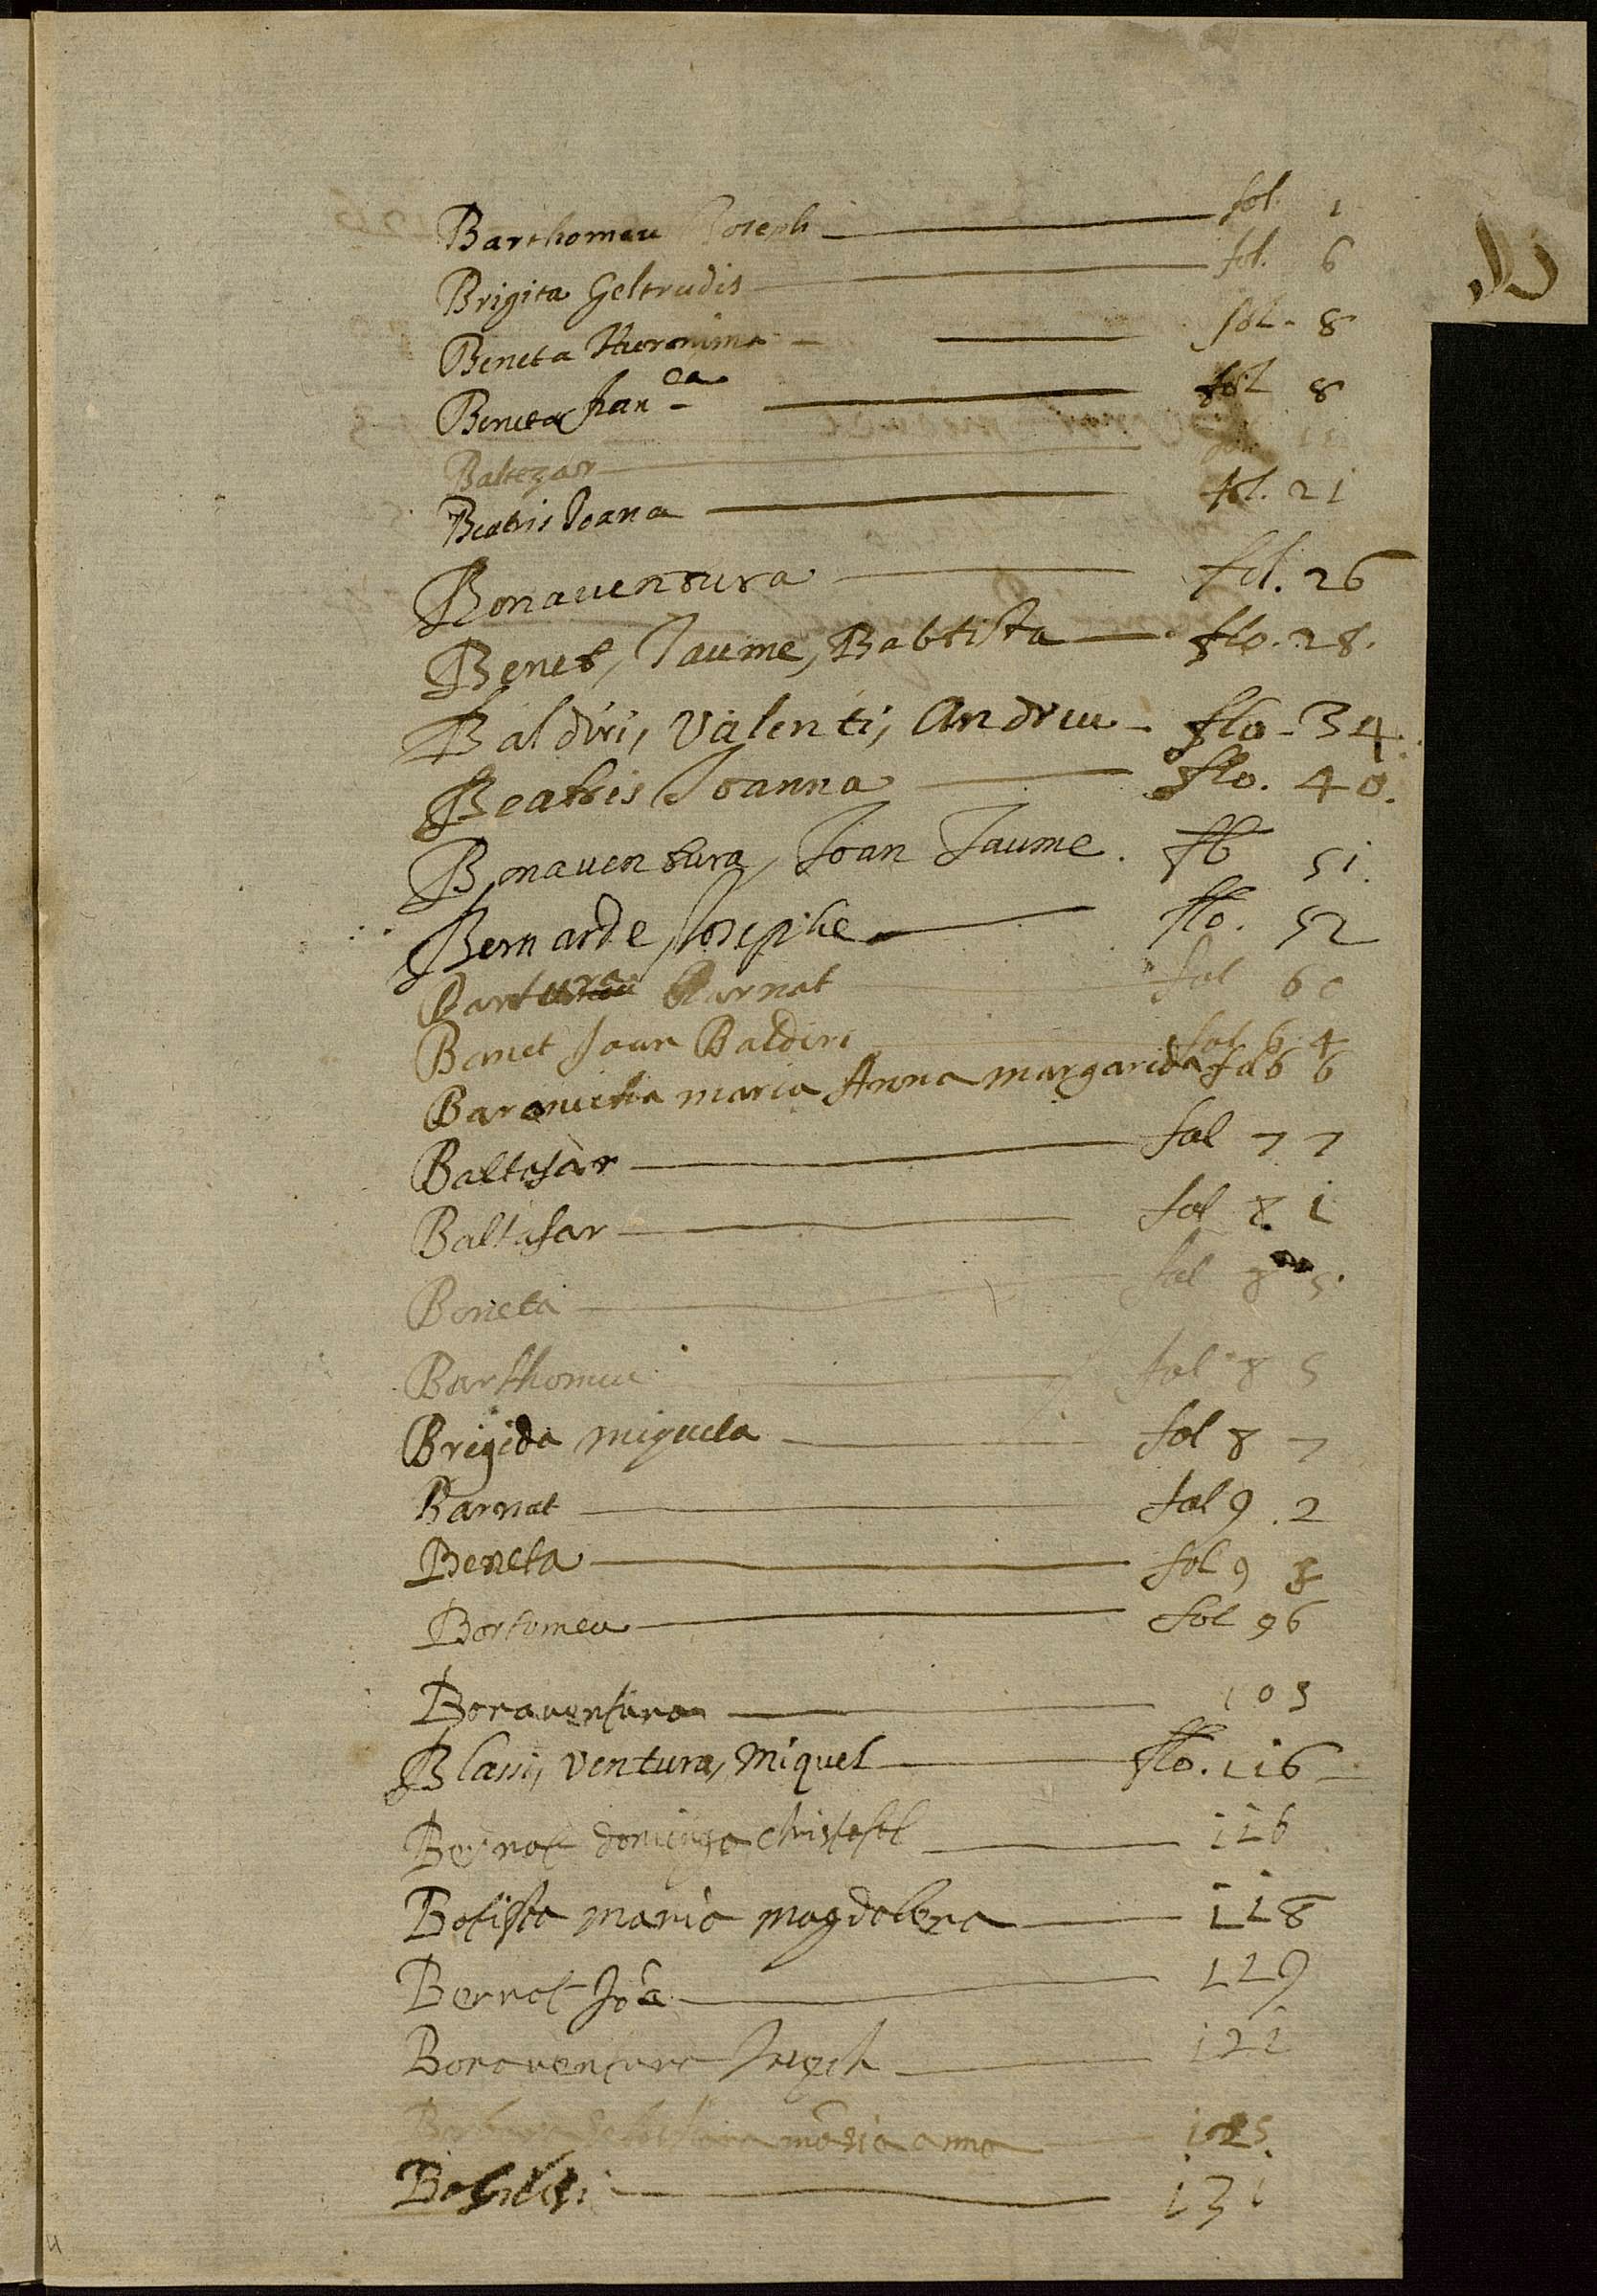 Barthomeu Joseph fol. 1
Brigita Geltrudis fol. 6
Beneta Hieronima fol. 8
Beneta Fran^ca fol 8
Baltezar
Beatris Joana fol. 21
Bonaventura fol. 26
Benet, Jaume, Babtista flo. 28.
Baldiri, Valenti, Andreu flo. 34.
Beatris Joanna flo. 40.
Bonaventura, Joan Jaume. fo 51.
Bernarde Josephe flo. 52
Barnat fol 60
Banet Joan Baldiri fol 64
maria Anna margarida fol 66
Baltesar fol 77
Baltasar fol 81
Beneta fol 85
Barthomeu fol 85
Brigida miquela fol 87
Barnat fol 92
Beneta fol 93
Bortomeu fol 96
Bonaventura 105
Blassi, Ventura, Miquel flo. 116
Bernat domingo christofol 116
Batista maria magdalena 118
Bernat Joā 119
Bonaventura Joseph 121
maria anna 125
131